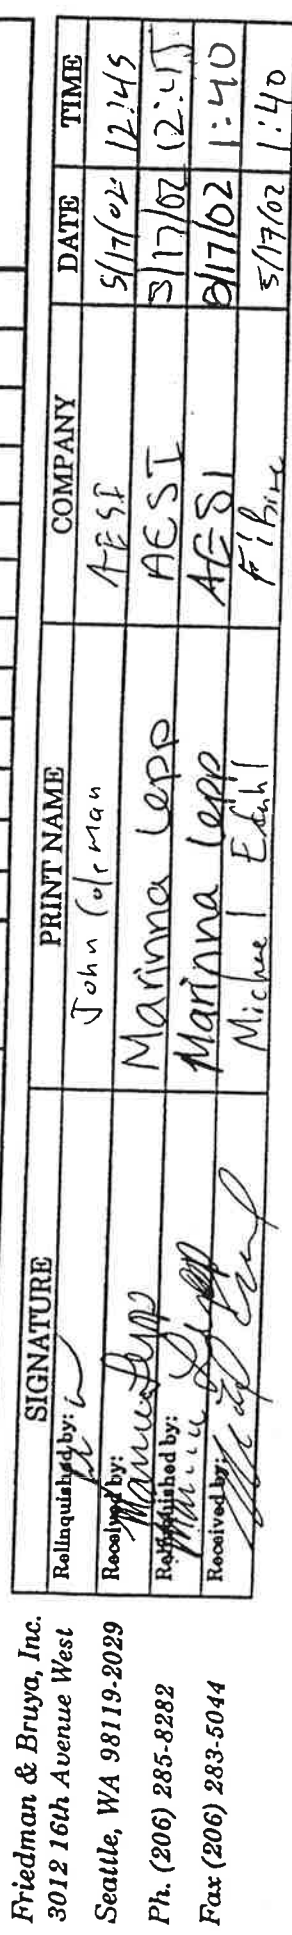 Friedman & Bruya, Inc.
3012 16th Avenue West
Seattle, WA 98119-2029
Ph. (206) 285-8282
Fax (206) 283-5044
SIGNATURE PRINT NAME COMPANY DATE TIME
Relinquished by: John Coleman AESI 5/17/02 12:45
Received by: Marinna Lepp Marinna Lepp AESI 5/17/02 12:45
Relinquished by: Marinna Lepp Marinna Lepp AESI 5/17/02 1:40
Received by: Michael 5/17/02 1:40